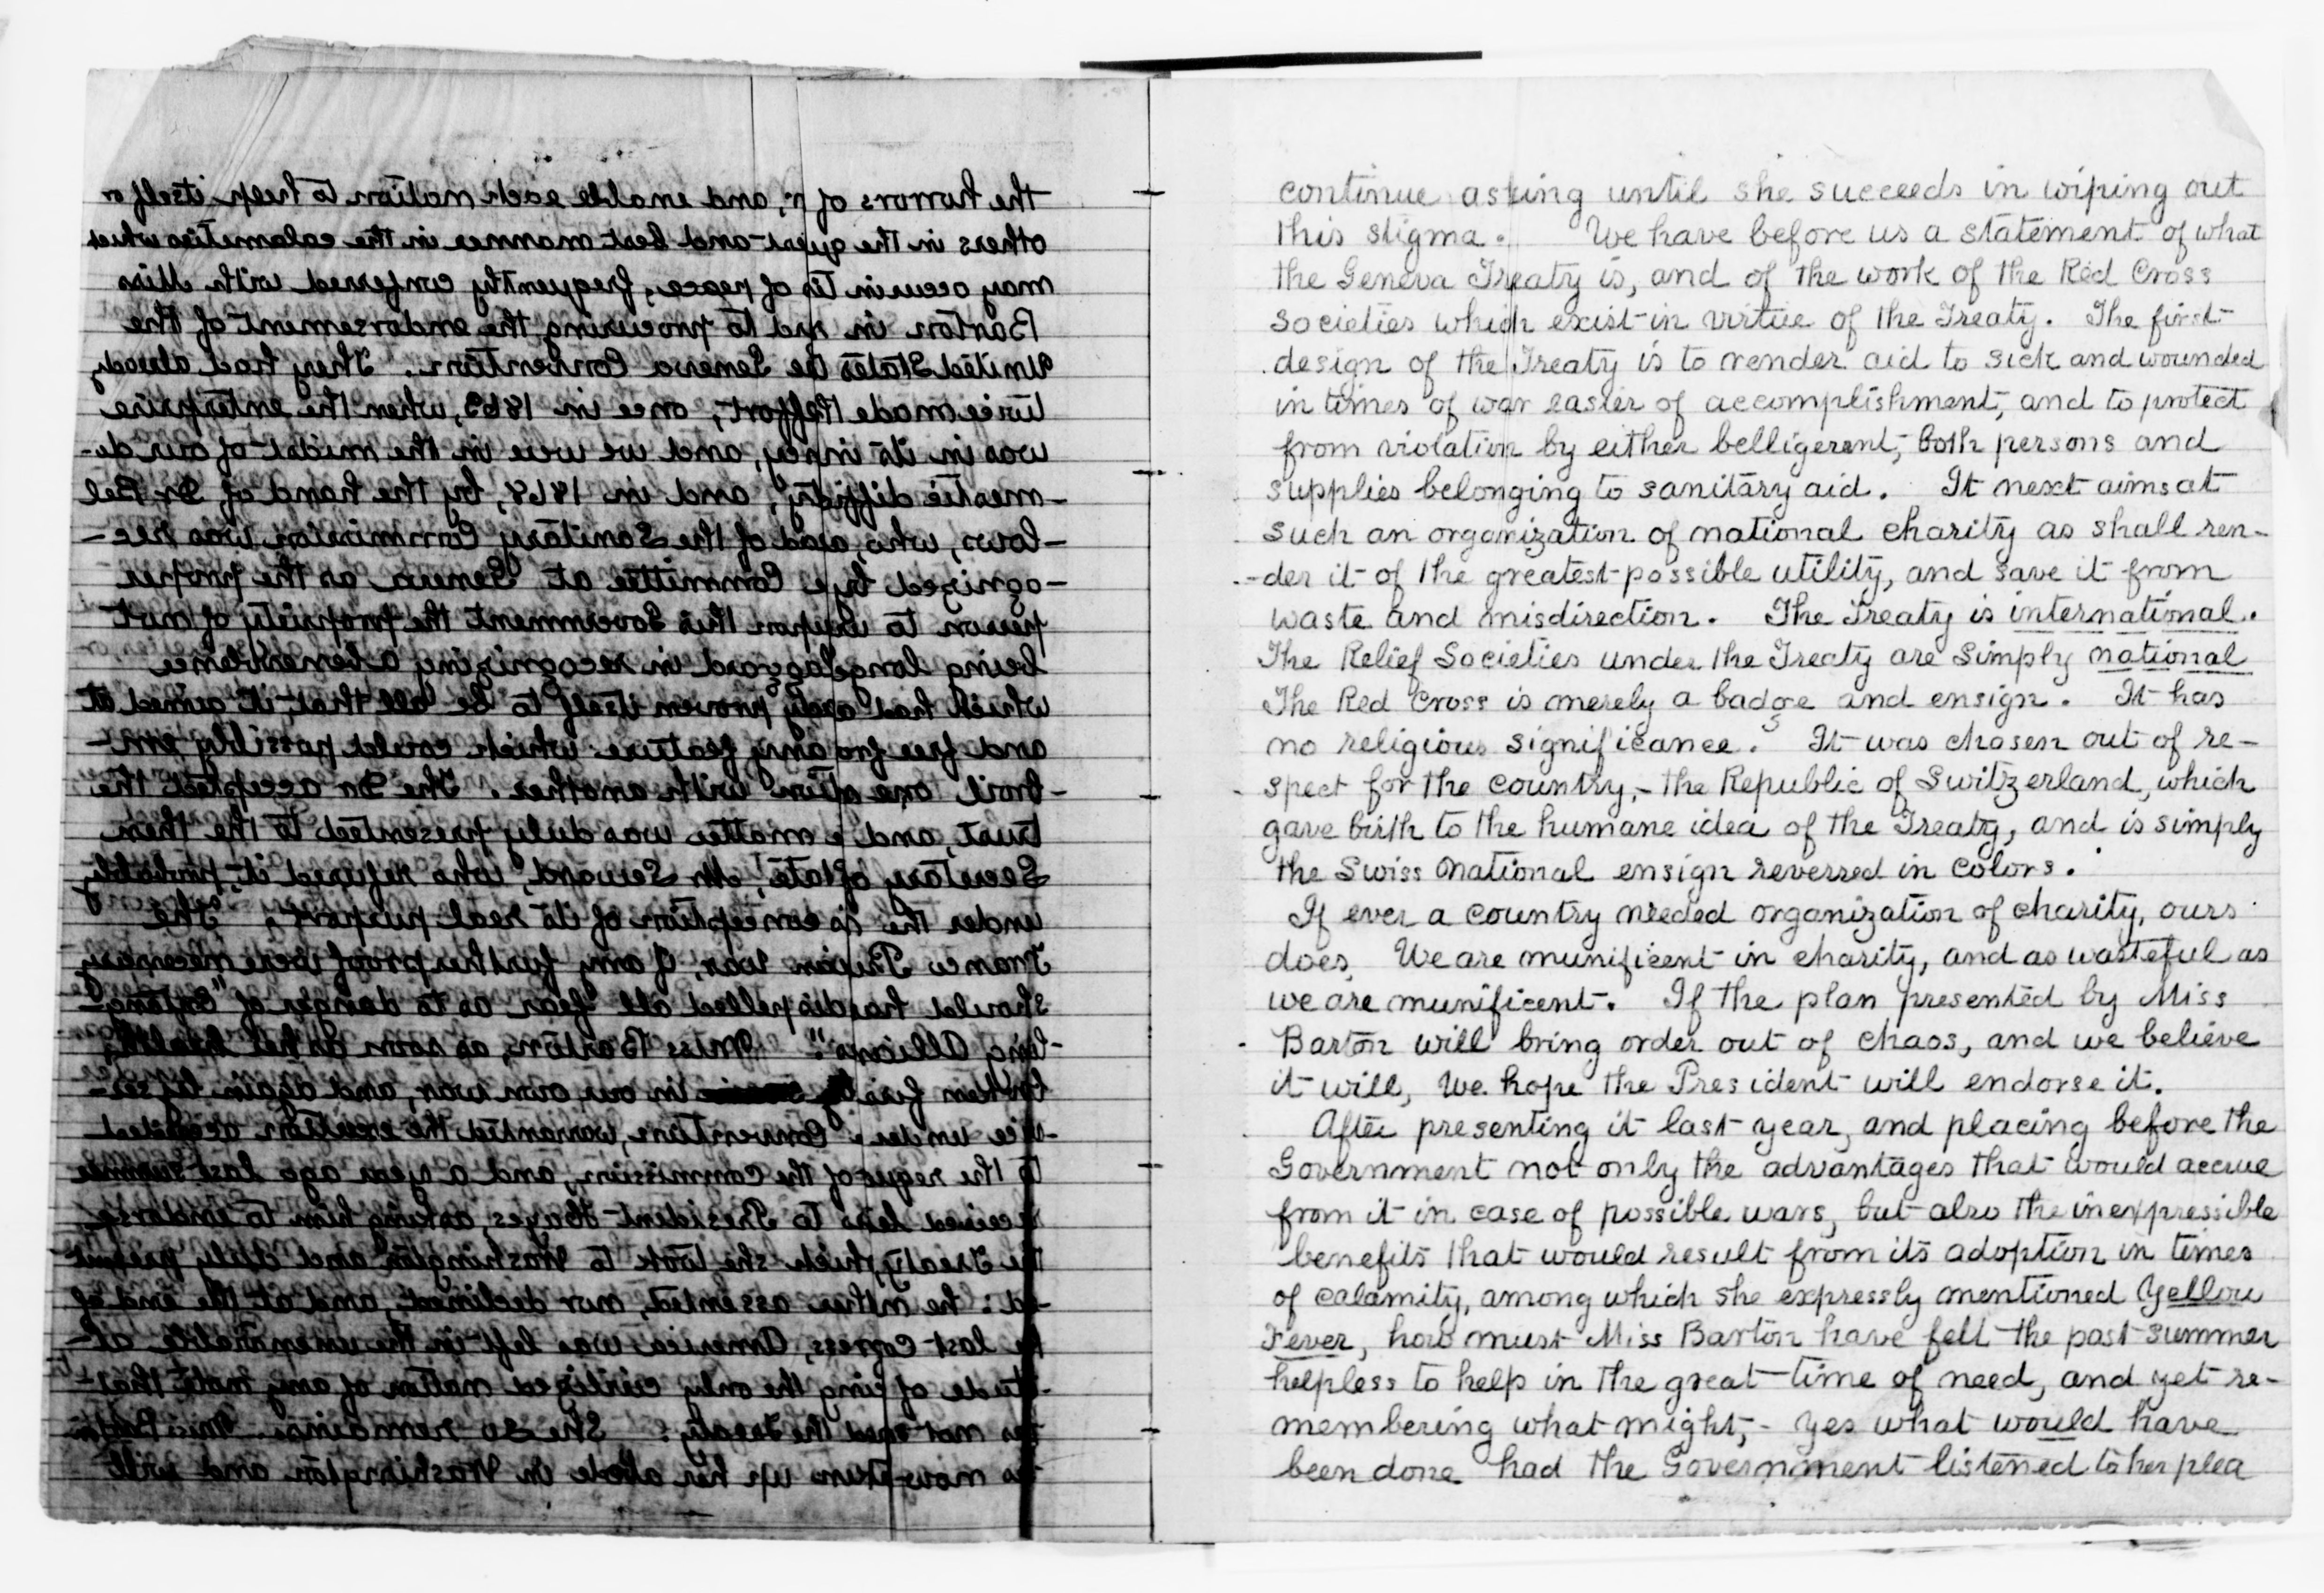 the horrors of and enable each nation to help itself or
others in the and best manner in the calamities which
may occur in of peace, frequently conferred with Miss
Barton in to procuring the endorsement of the
United States the Geneva Convention. They had already
twice made effort, once in 1863, when the enterprise
was in its and we were in the midst of our do-
-mestic and in 1868, by the hand of Dr Bel
-lows, who, of the Sanitary Commission was rec-
-ognized Committee at Geneva as the proper
person to upon this Government the propriety of not
being long laggard in recognizing a benevolence
which had proven itself to be all that it aimed at
and free any feature which could possibly em-
-broil one with another. The Dr accepted the
trust, and matter was duly presented to the then
Secretary of State, Mr Seward, who refused it, probably
under the of its real purport. The
Franco war, if any further proof were necessary
should dispelled all fear as to danger of "entang-
-ling Alliances". Miss Barton, as soon as her health,
broken in our own war, and again by ser-
-vice under Convention, warranted the exertion acceded
to the of the Commission, and a year ago last summer
received to President Hayes, asking him to endorse
the Treaty, which she took to Washington and duly present
-ed: he neither assented, nor declined, and at the end of
last America was left in the unenviable at-
-titude of being the only civilized nation of any note that
had not the Treaty. She so remains. Miss Barton
has now taken up her abode in Washington and will
continue asking until she succeeds in wiping out
this stigma. We have before us a statement of what
the Geneva Treaty is, and of the work of the Red Cross
Societies which exist in virtue of the Treaty. The first
design of the Treaty is to render aid to sick and wounded
in times of war easier of accomplishment, and to protect
from violation by either belligerent, both persons and
supplies belonging to sanitary aid. It next aims at
such an organization of national charity as shall ren-
-der it of the greatest possible utility, and save it from
waste and misdirection. The Treaty is international.
The Relief Societies under the Treaty are simply national
The Red Cross is merely a badge and ensign. It has
no religious significance. It was chosen out of re-
spect for the country,- the Republic of Switzerland, which
gave birth to the humane idea of the Treaty, and is simply
the Swiss national ensign reversed in colors.
If ever a country needed organization of charity, ours
does. We are munificent in charity, and as wasteful as
we are munificent. If the plan presented by Miss
Barton will bring order out of chaos, and we believe
it will, We hope the President will endorse it.
After presenting it last year, and placing before the
Government not only the advantages that would accrue
from it in case of possible wars, but also the inexpressible
benefits that would result from its adoption in times
of calamity, among which she expressly mentioned Yellow
Fever, how must Miss Barton have felt the past summer
helpless to help in the great time of need, and yet re-
membering what might,- yes what would have
been done had the Government listened to her plea